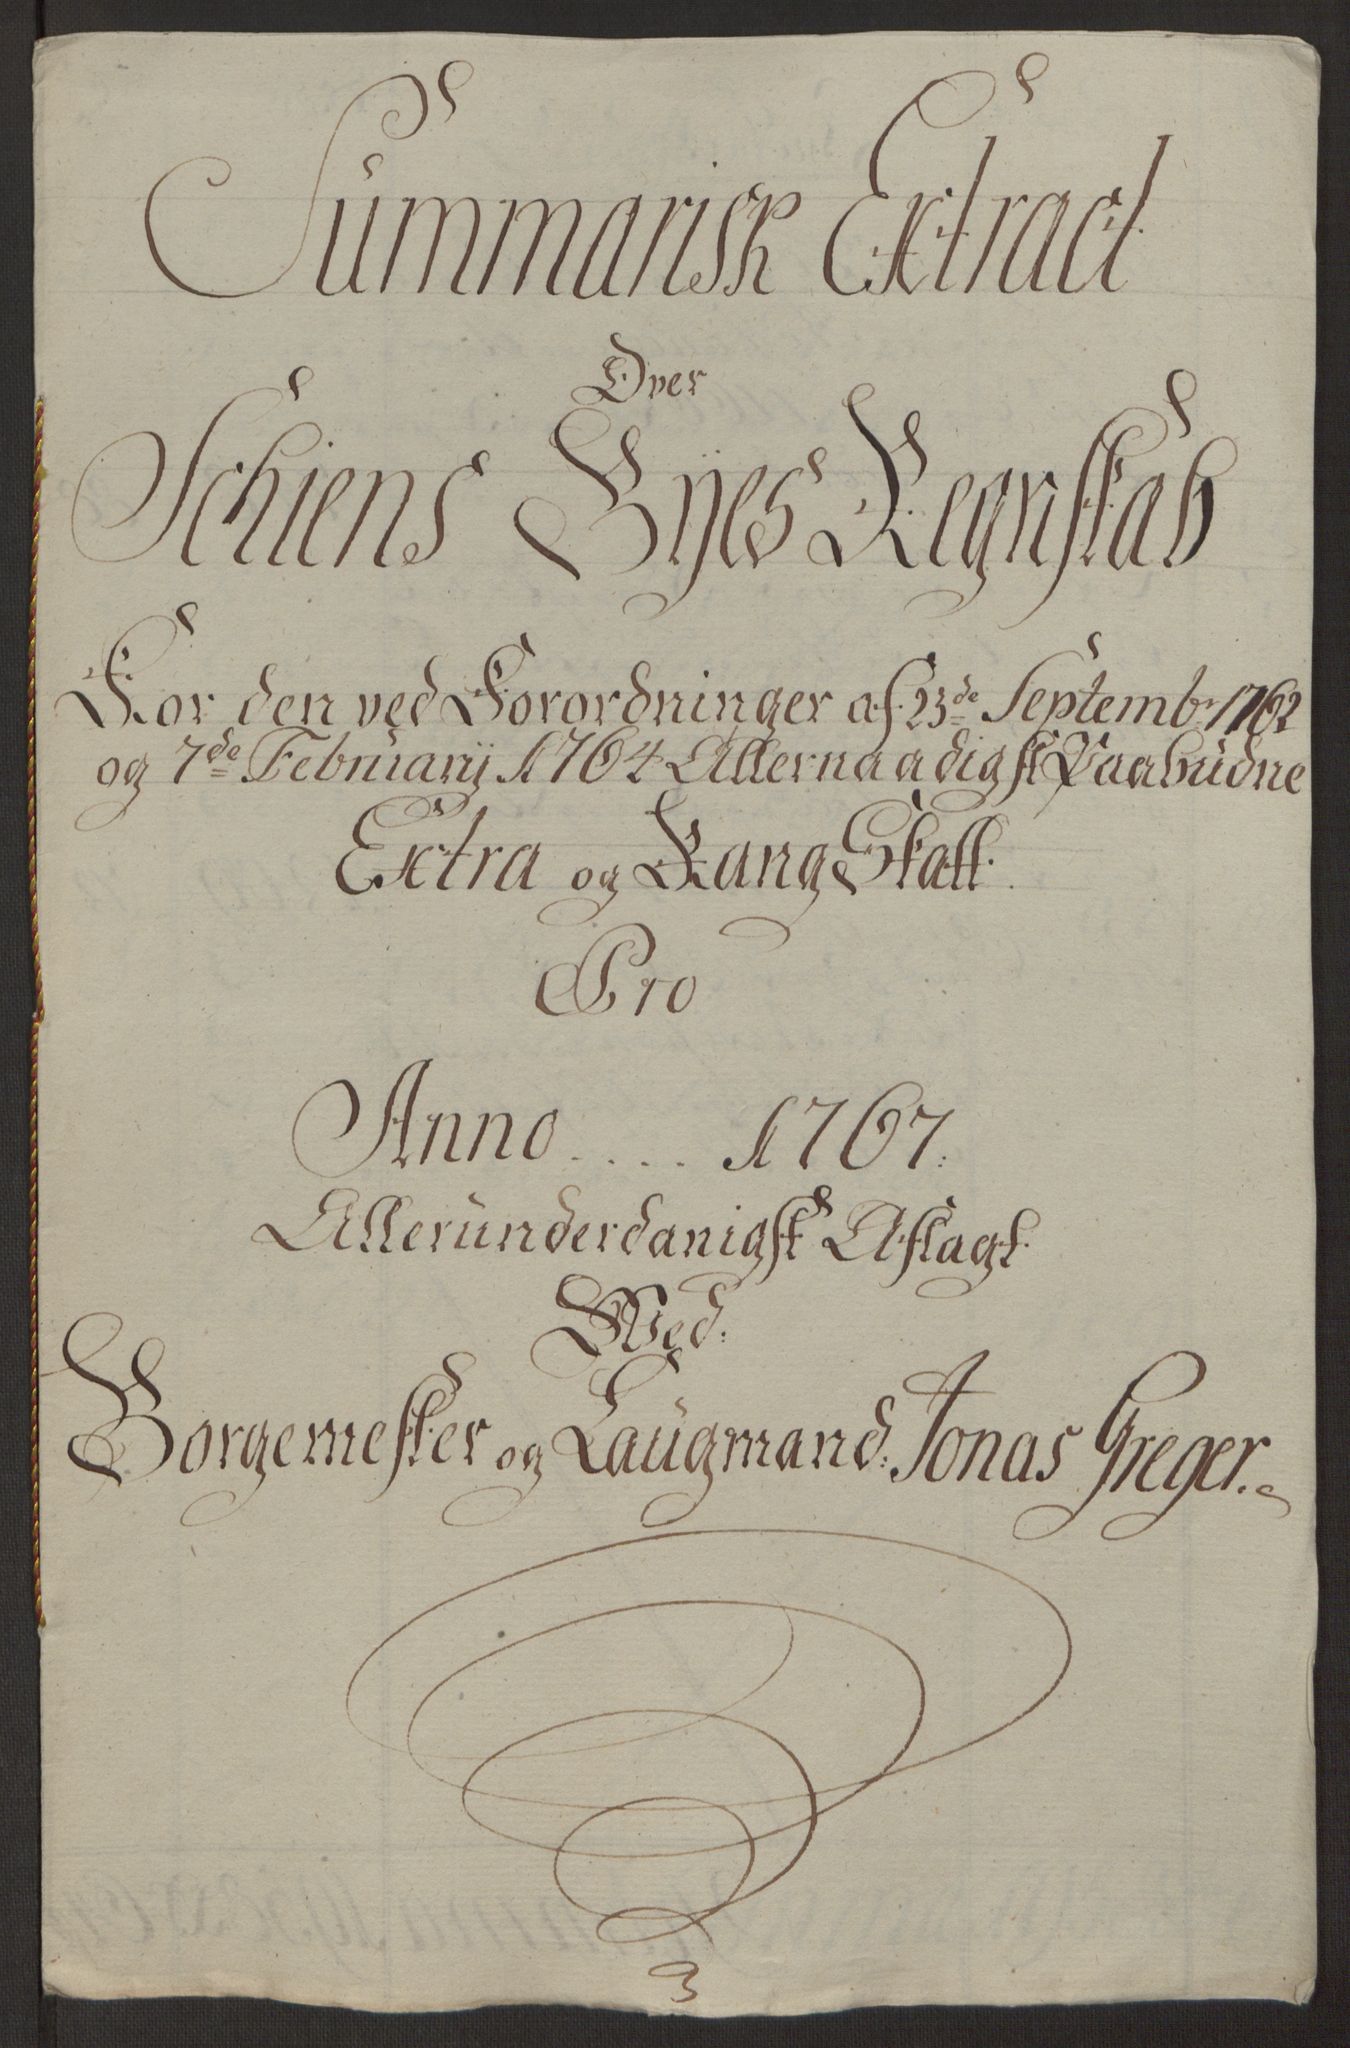 Summarisk Extract
Over
Schiens Byes Regnskab
For den ved Forordninger af 23de Septembr 1762
og 7de Februarij 1764 Allernaadigst Paabudne
Extra og Rang Skatt.
Pro
Anno .... 1767.
Allerunderdanigst Aflagt.
Med.
Borgemester og Laugmand. Jonas Greger.